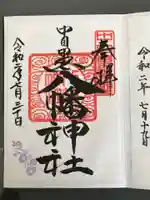 奉拝
中目黒
八幡神社
令和二年七月三十日
令和二年
七月十九日